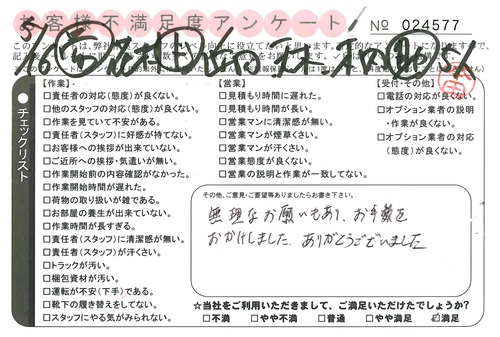 お客様不満足度アンケート
№ 024577
チェックリスト
【作業】
□責任者の対応(態度)が良くない。
□他のスタッフの対応(態度)が良くない。
□作業を見ていて不安がある。
□責任者(スタッフ)に好感が持てない。
□お客様への挨拶が出来ていない。
□ご近所への挨拶・気遣いが無い。
□作業開始前の内容確認がなかった。
□作業開始時間が遅れた。
□荷物の取り扱いが雑である。
□お部屋の養生が出来ていない。
□作業時間が長すぎる。
□責任者(スタッフ)に清潔感が無い。
□責任者(スタッフ)が汗くさい。
□トラックが汚い。
□梱包資材が汚い。
□運転が不安(下手)である。
□靴下の履き替えをしてない。
□スタッフにやる気がみられない。
【営業】
□見積もり時間に遅れた。
□見積もり時間が長い。
□営業マンに清潔感が無い。
□営業マンが煙草くさい。
□営業マンが汗くさい。
□営業態度が良くない。
□営業の説明と作業が一致してない。
【受付・その他】
□電話の対応が良くない
□オプション業者の説明
・作業が良くない。
□オプション業者の対応
(態度)が良くない。
その他、ご意見・ご要望等ありましたらお書き下さい。
無理なお願いもあり、お手数を
おかけしました。ありがとうございました
☆当社をご利用いただきまして、ご満足いただけたでしょうか?
□不満 □やや不満 □普通 □やや満足 ☑満足